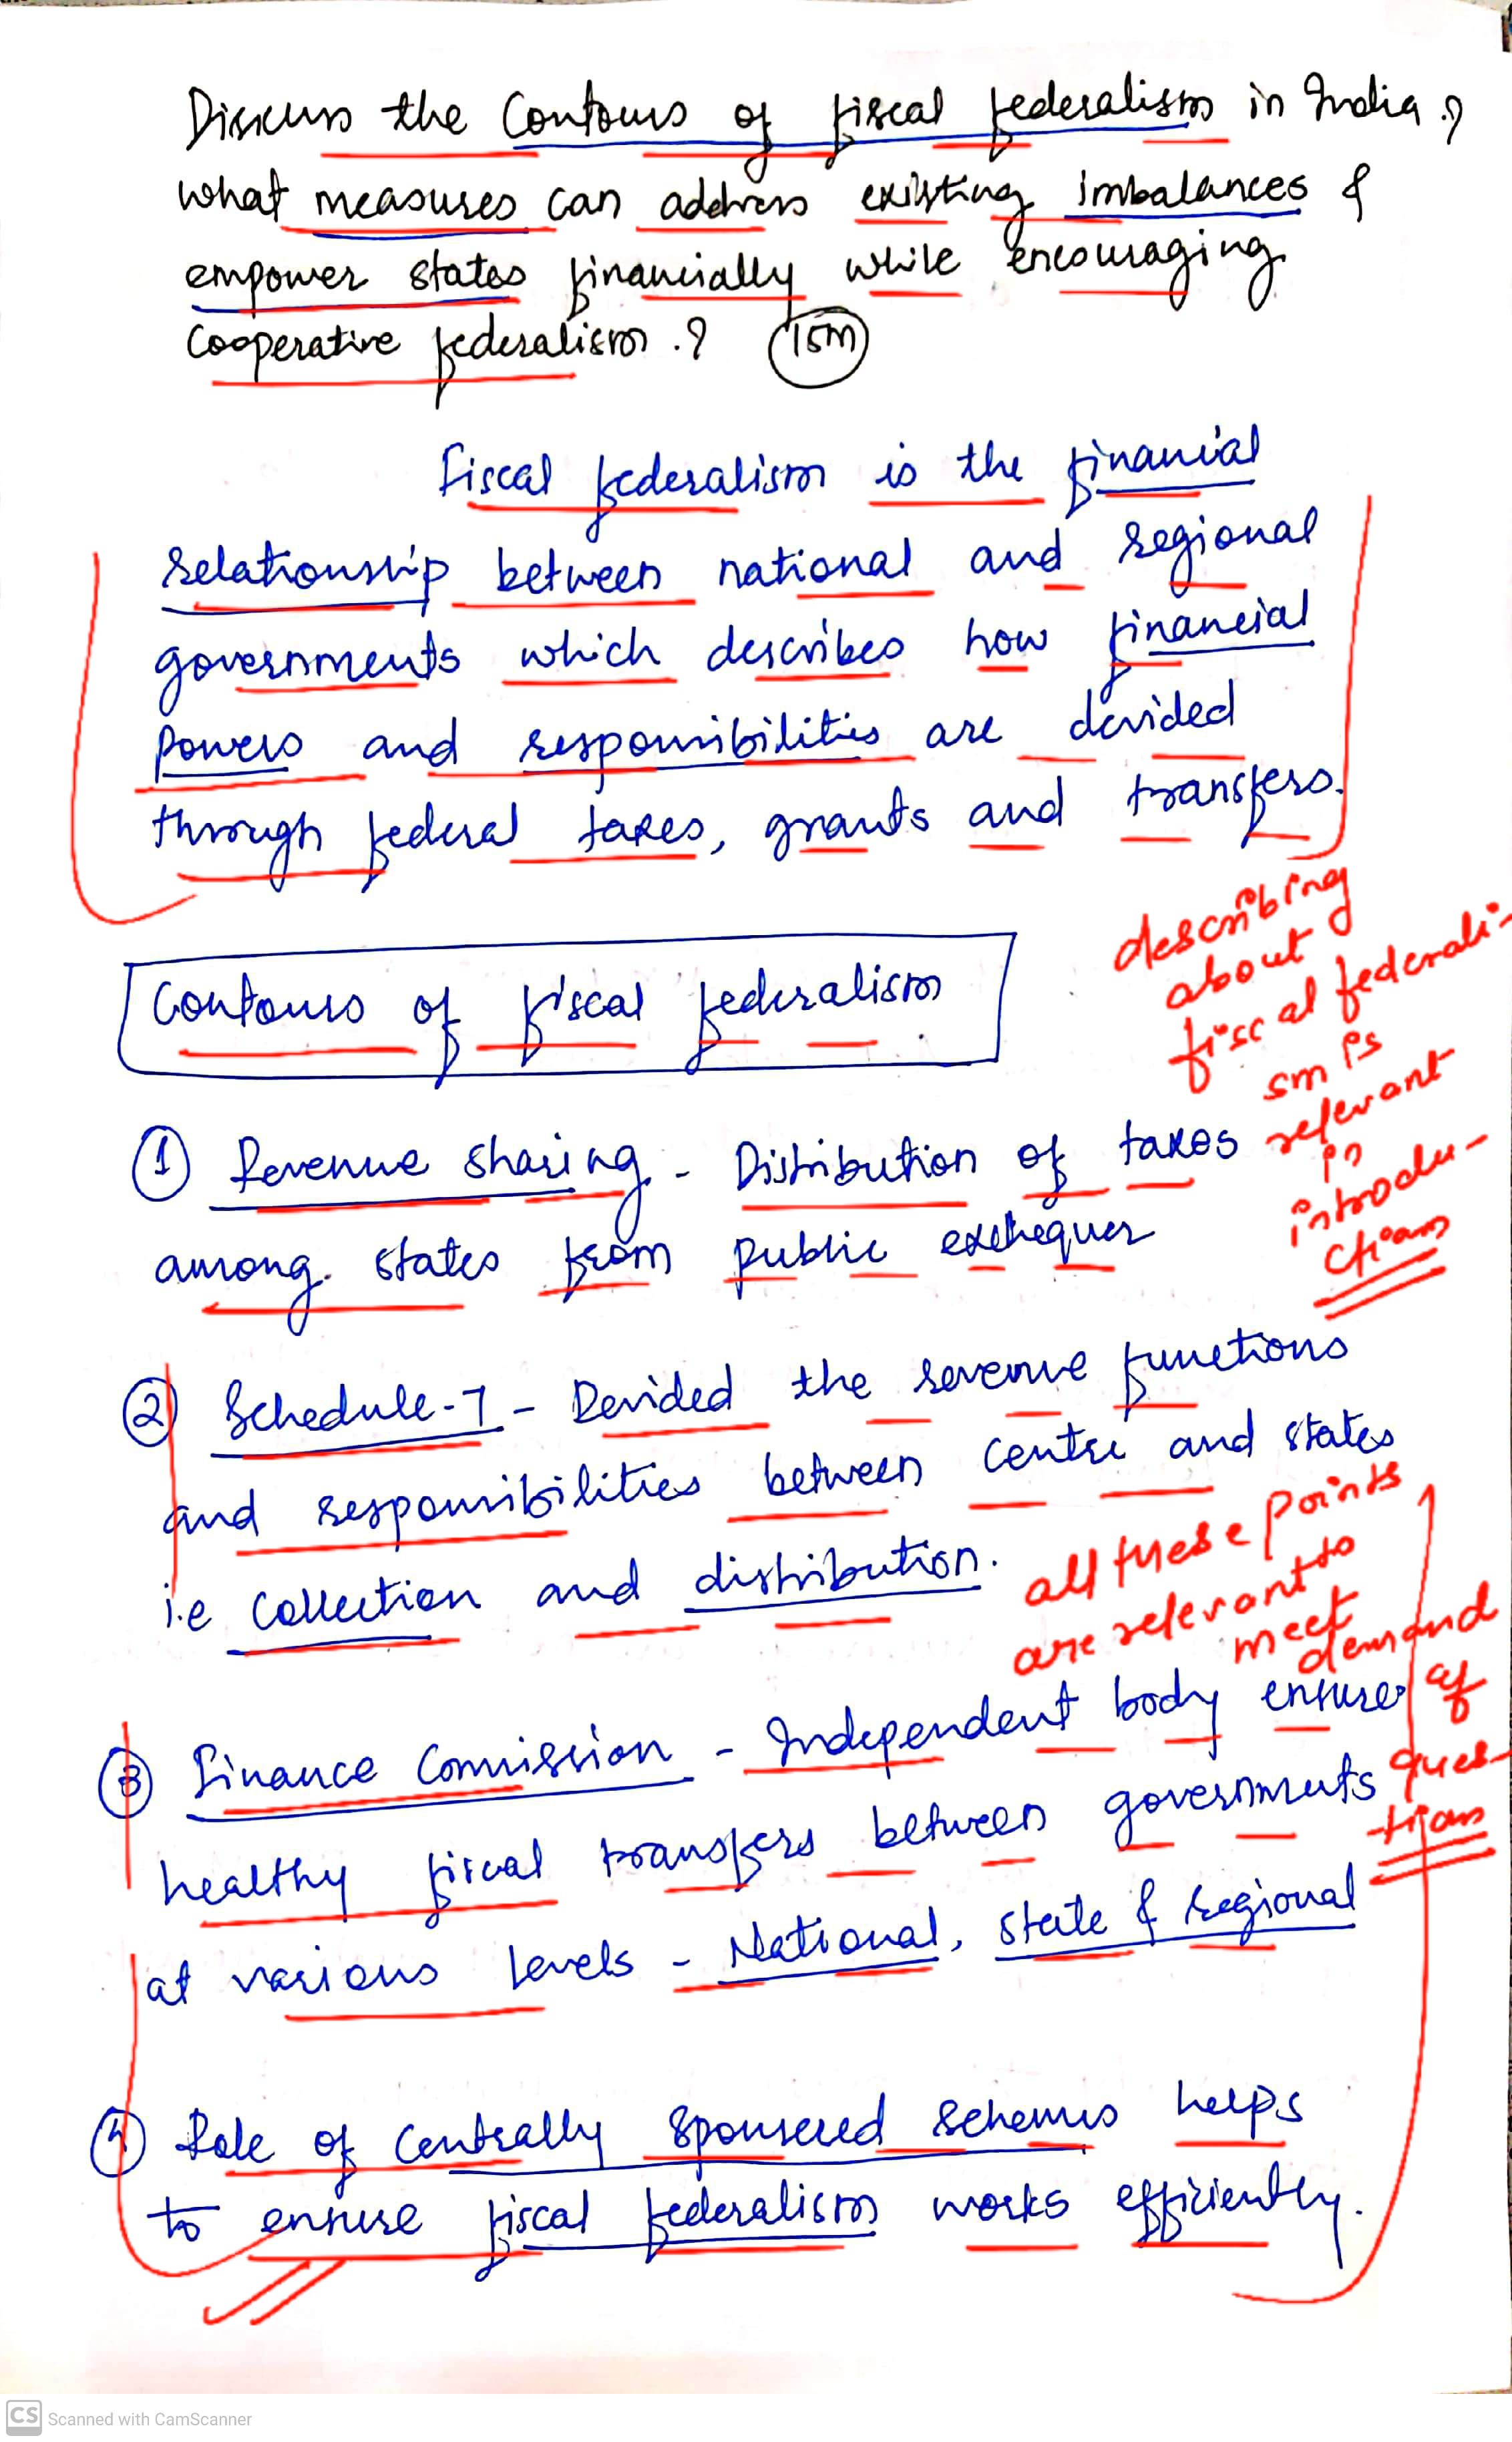 Discuss the Contours of fiscal federalism in India.?
what measures can address existing imbalances &
empower states financially while encouraging
cooperative federalism.? 15m
Fiscal federalism is the financial
relationship between national and regional
governments which describes how financial
powers and responsibilities are devided
through federal taxes, grants and transfers.
describing
about
fiscal federali-
sm is
relevant
in
introdu-
ction
Contours of fiscal federalism
① Revenue sharing - Distribution of taxes
among states from public exchequer
② Schedule-7 - Devided the revenue functions
and responsibilities between centre and states
i.e collection and distribution.
all these points
are relevant to
meet
demand
of
ques-
tion
③ Finance Comission - Independent body ensures
healthy fiscal transfers between governments
at various levels - National, state & regional
④ Role of centrally sponsered schemes helps
to ensure fiscal federalism works efficiently.
CS Scanned with CamScanner